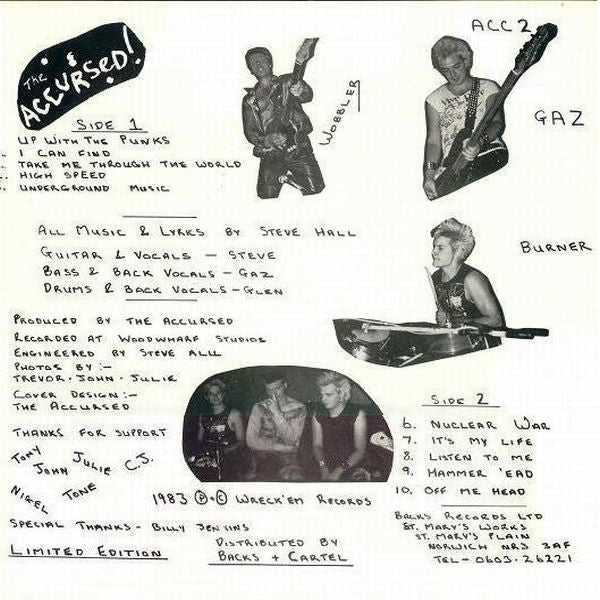 The
&
ACCURSED!
ACC 2
WOBBLER
GAZ
BURNER
SIDE 1
UP WITH THE PUNKS
I CAN FIND
TAKE ME THROUGH THE WORLD
HIGH SPEED
UNDERGROUND MUSIC
ALL MUSIC & LYRKS BY STEVE HALL
GUITAR & VOCALS — STEVE
BASS & BACK VOCALS - GAZ
DRUMS & BACK VOCALS - GLEN
PRODUCED BY THE ACCURSED
RECORDED AT WOODWHARF STUDIOS
ENGINEERED BY STEVE ALLL
PHOTOS BY :-
TREVOR · JOHN · JULIE
COVER DESIGN :-
THE ACCURSED
THANKS FOR SUPPORT
TONY JOHN JULIE C.J.
NIGEL TONE
1983 Ⓟ+© WRECK'EM RECORDS
SPECIAL THANKS - BILLY JENKINS
LIMITED EDITION
DISTRIBUTED BY
BACKS + CARTEL
SIDE 2
6. NUCLEAR WAR
7. IT'S MY LIFE
8. LISTEN TO ME
9. HAMMER 'EAD
10. OFF ME HEAD
BACKS RECORDS LTD
ST. MARY'S WORKS
ST. MARY'S PLAIN
NORWICH NR3 3AF
TEL- 0603·26221